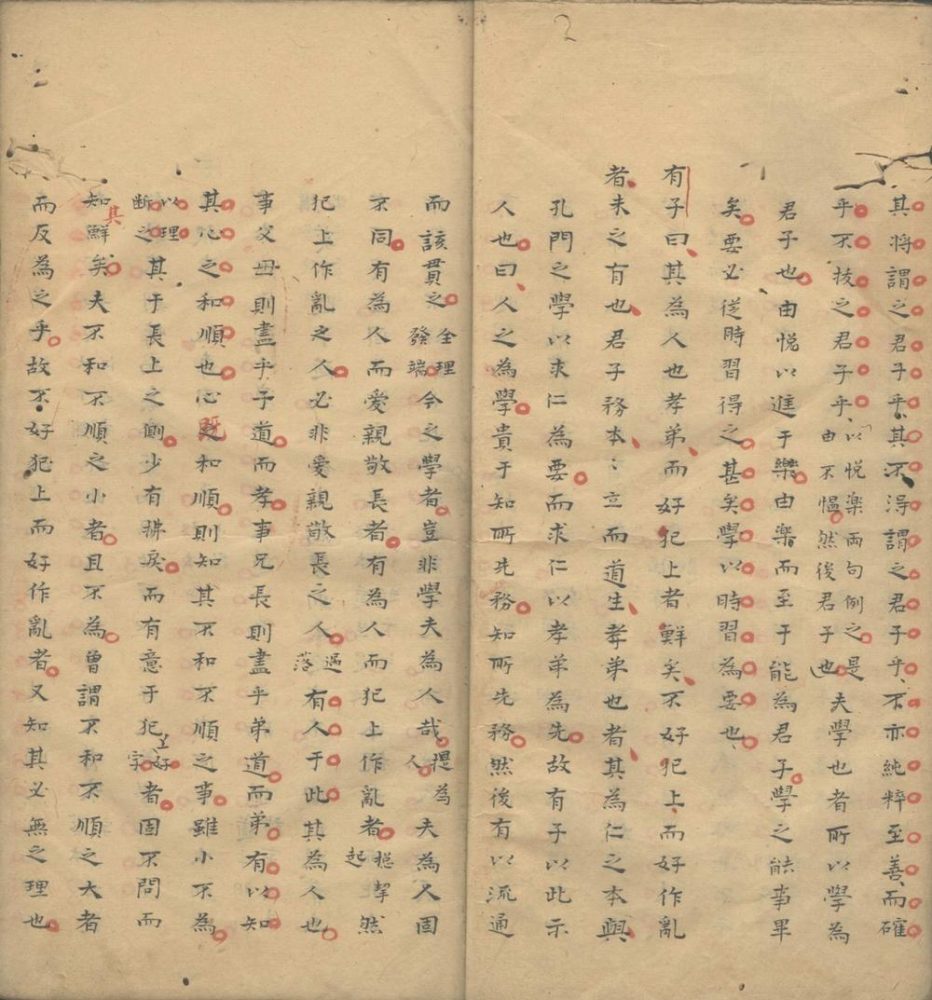 其將謂之君子乎其不得謂之君子乎不亦純粹至善而確
乎不拔之君子乎以悅樂兩句例之是由不慍然後君子也夫學也者所以學為
君子也由悅以進于樂由樂而至于能為君子學之能事畢
矣要必從時習得之甚矣學以時習為要也
有子曰其為人也孝弟而好犯上者鮮矣不好犯上而好作亂
者未之有也君子務本〻立而道生孝弟也者其為仁之本與
孔門之學以求仁為要而求仁以孝弟為先故有子以此示
人也曰人之為學貴于知所先務知所先務然後有以流通
而該貫之全理發端今之學者豈非學夫為人哉提為人夫為人固
不同有為人而愛親敬長者有為人而犯上作亂者總挈起然
犯上作亂之人必非愛親敬長之人遞落有人于此其為人也
事父母則盡乎子道而孝事兄長則盡乎弟道而弟有以知
其心之和順也心既之和順則知其不和不順之事雖小不為
以理斷之其于長上之側少有拂戾而有意于犯上好字者固不問而
知其鮮矣夫不和不順之小者且不為曾謂不和不順之大者
而反為之乎故不好犯上而好作亂者又知其必無之理也